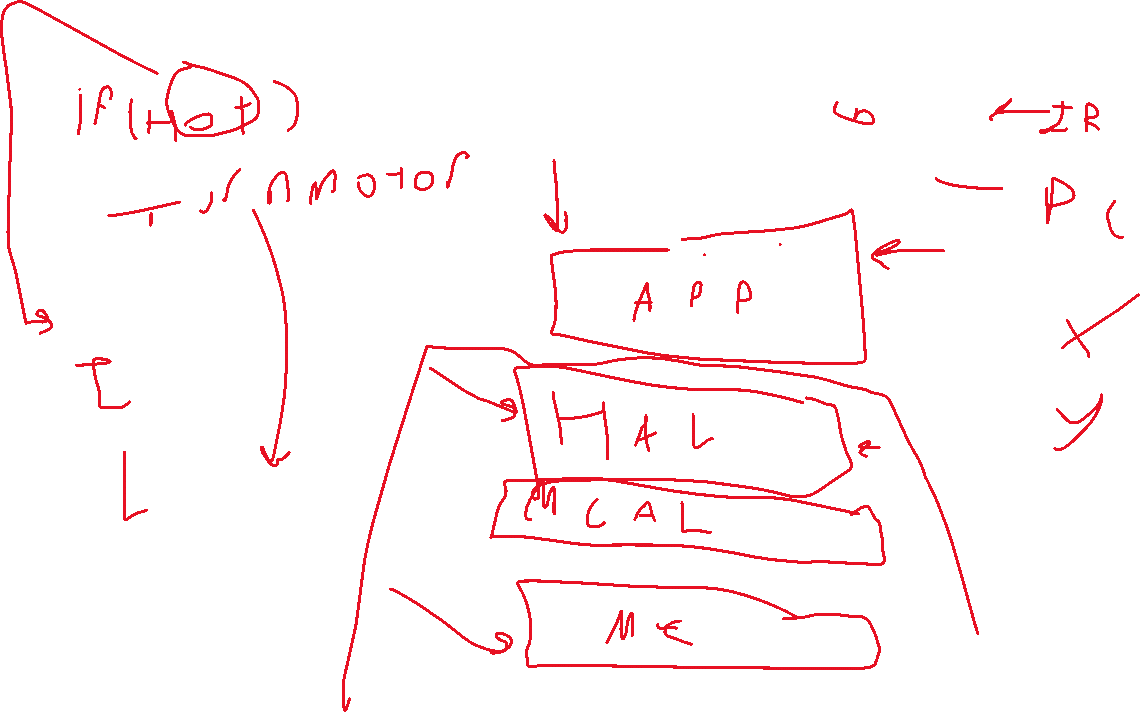 if(Hot)
Turn Motor
IR
APP
HAL
MCAL
MC
I
L
x
y